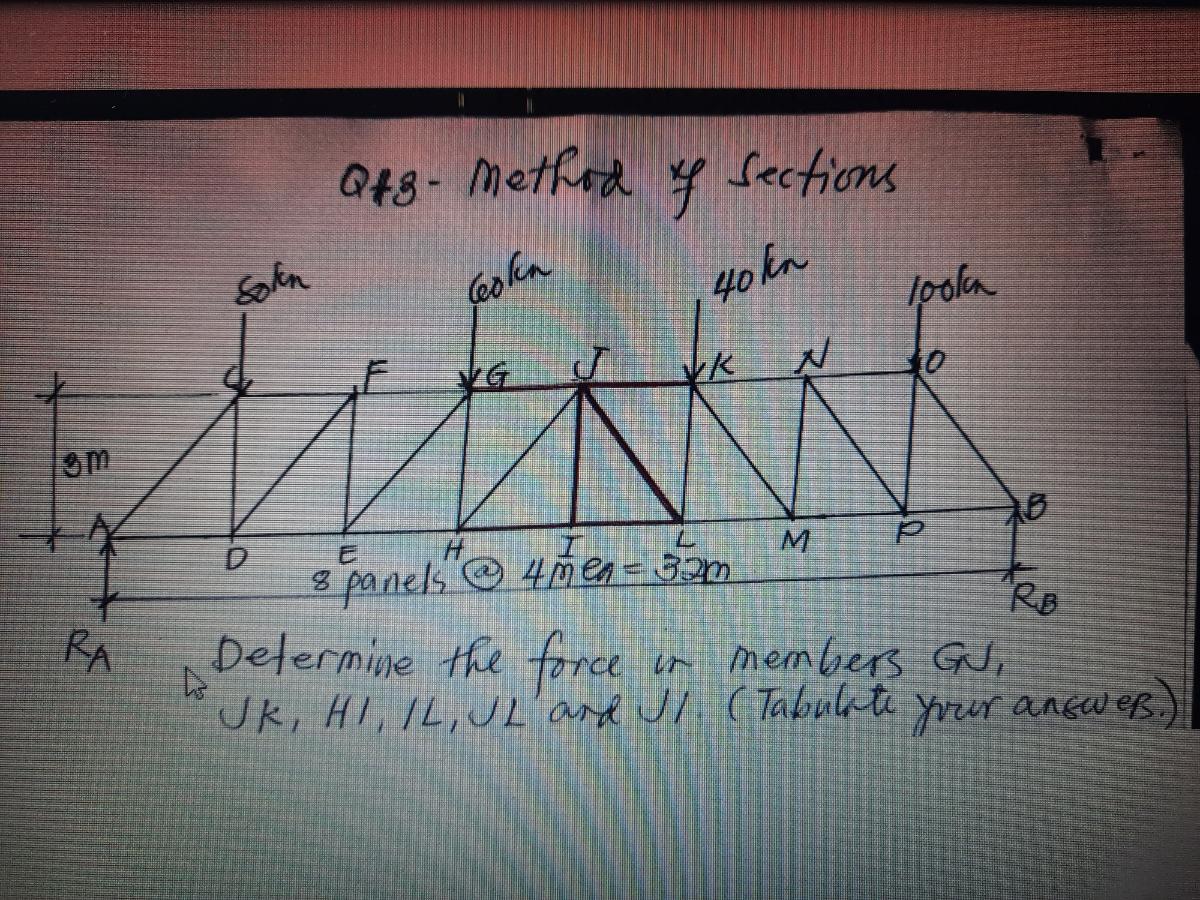 Q+8- Method of Sections
80kn 60kn 40kn 100kn
C F G J K N O
3m
A D E H I L M P B
8 panels @ 4m en = 32m
RA RB
Determine the force in members GJ,
JK, HI, IL, JL and JI. (Tabulate your answers.)